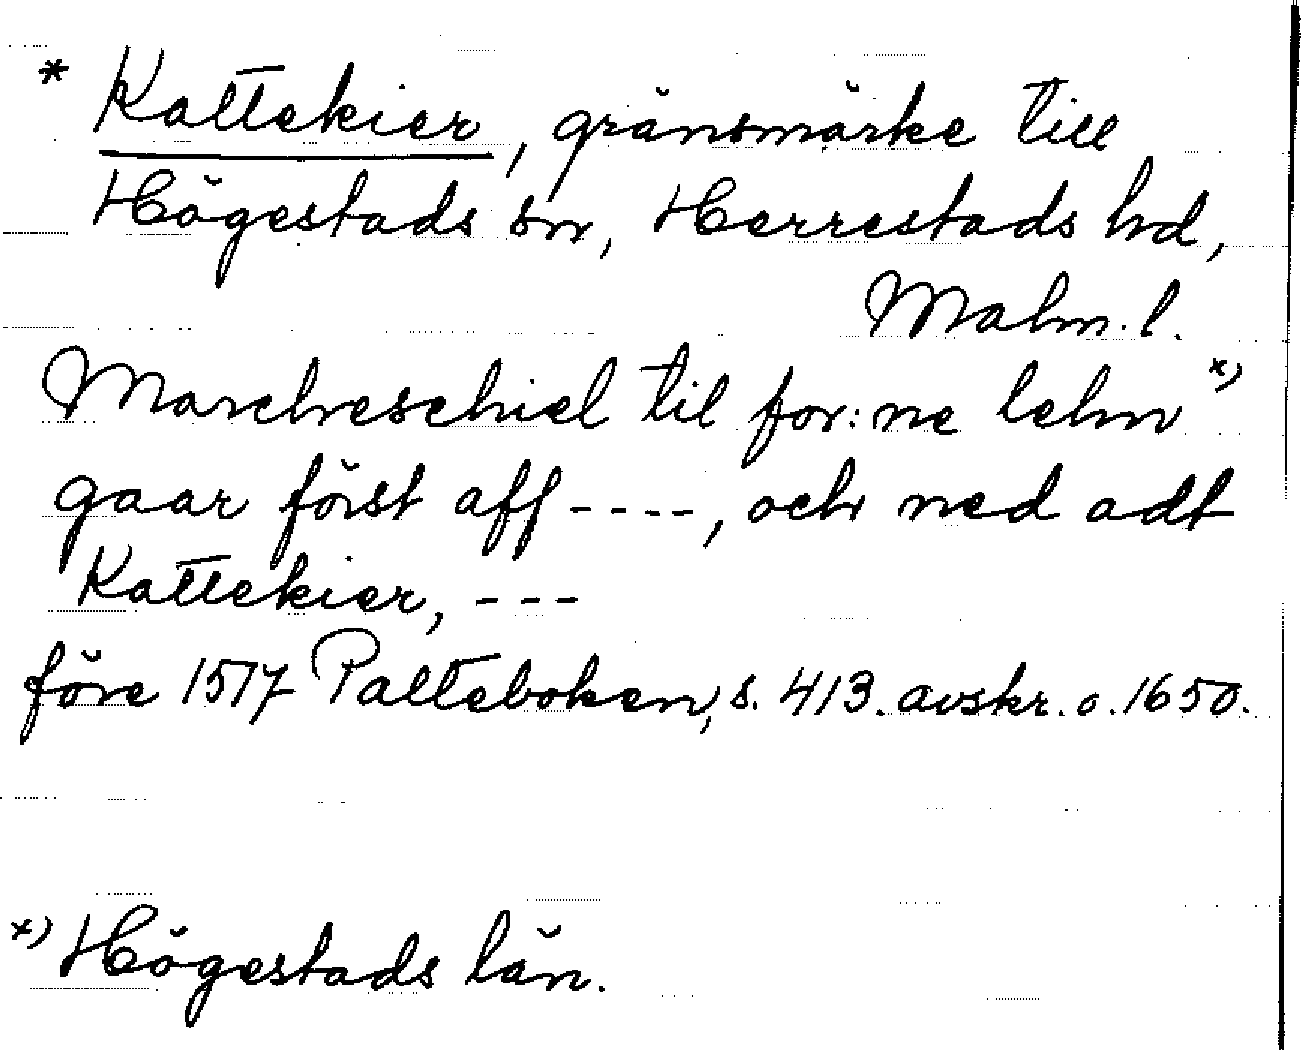 * Kattekier, gränsmärke till
Högestads sn, Herrestads hd,
Malm. l.
Marchreschiel til for:ne lehn x)
gaar först aff ----, och ned adt
Kattekier, ---
före 1517 Palteboken, s. 413. avskr. o. 1650.
x) Högestads län.